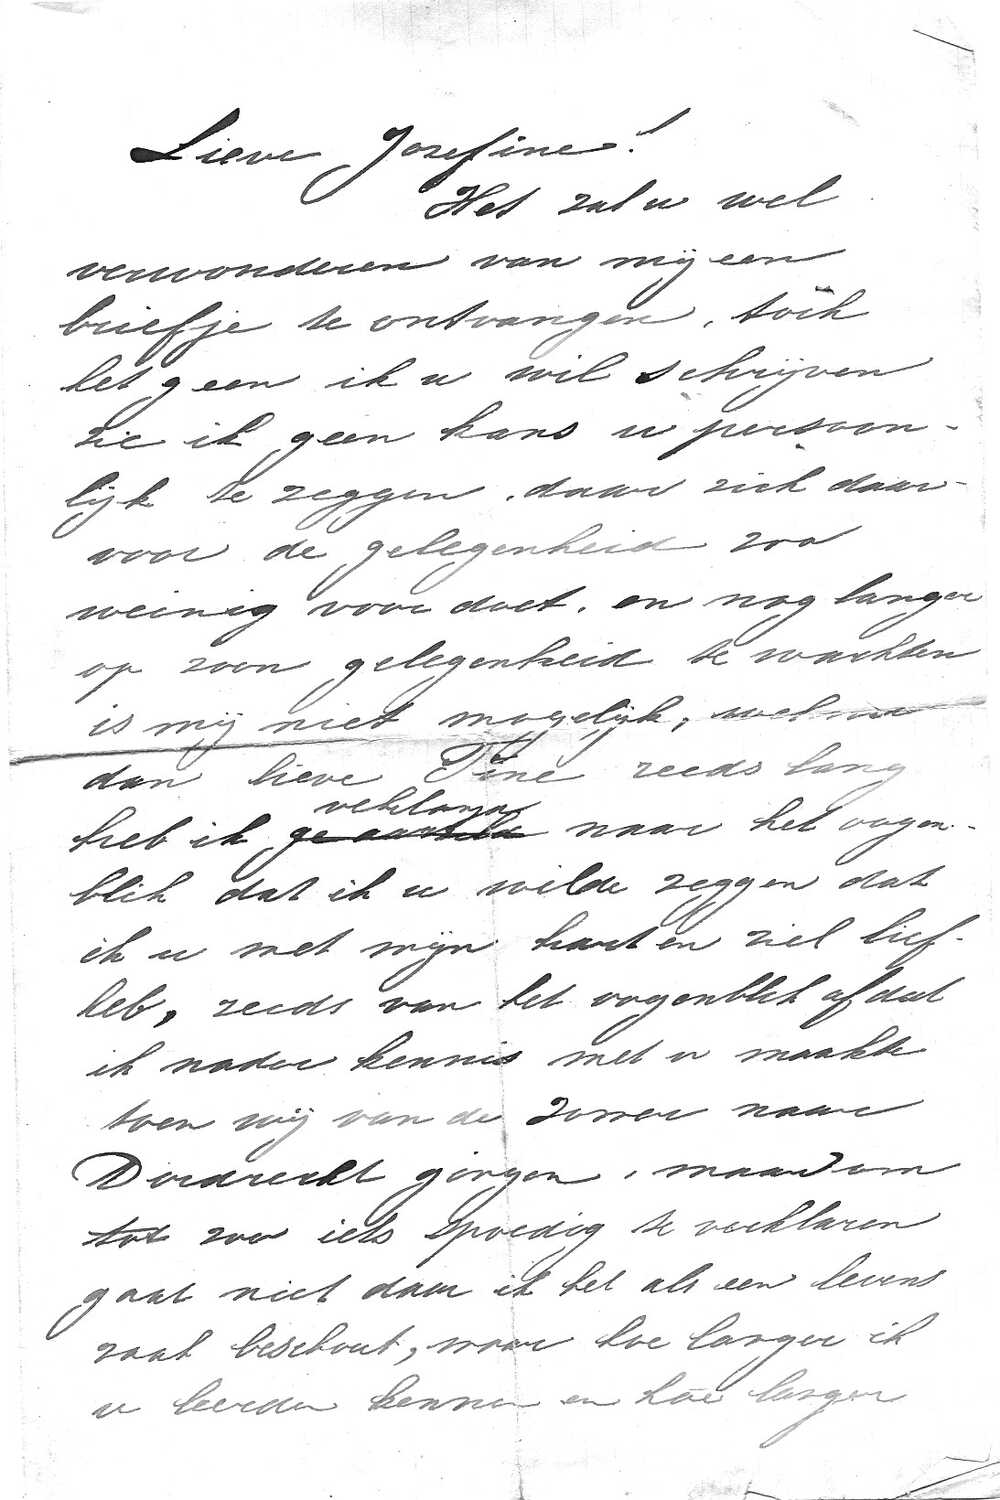 Lieve Josefine!
Het zal u wel
verwonderen van mij een
briefje te ontvangen, toch
hetgeen ik u wil schrijven
zie ik geen kans u persoon-
lijk te zeggen, daar zich daar-
voor de gelegenheid zoo
weinig voor doet, en nog langer
op zoon gelegenheid te wachten
is mij niet mogelijk, welnu
dan lieve Tine reeds lang
verlangd
heb ik naar het oogen-
blik dat ik u wilde zeggen dat
ik u met mijn hart en ziel lief-
heb, reeds van het oogenblik af dat
ik nader kennis met u maakte
toen wij van de zomer naar
Dordrecht gingen, maar om
tot zoo iets spoedig te verklaren
gaat niet daar ik het als een levens
zaak beschout, maar hoe langer ik
u leerden kennen en hoe langer